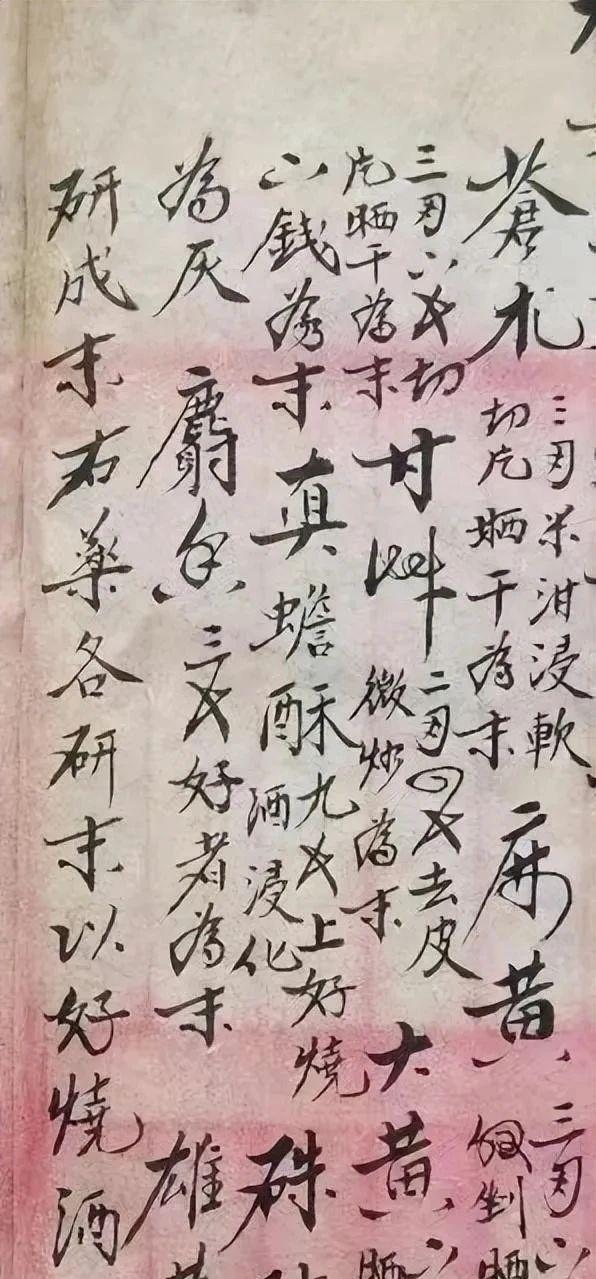 蒼朮
三两米泔浸軟
切片晒干為末
麻黄
三两六
剉晒
三两六钱切
片晒干為末
甘艸
二两四钱去皮
微炒為末
大黄
晒
六錢為末
真蟾酥
九钱上好燒
酒浸化
硃
為灰
麝香
三钱好者為末
雄
研成末右藥各研末以好燒酒